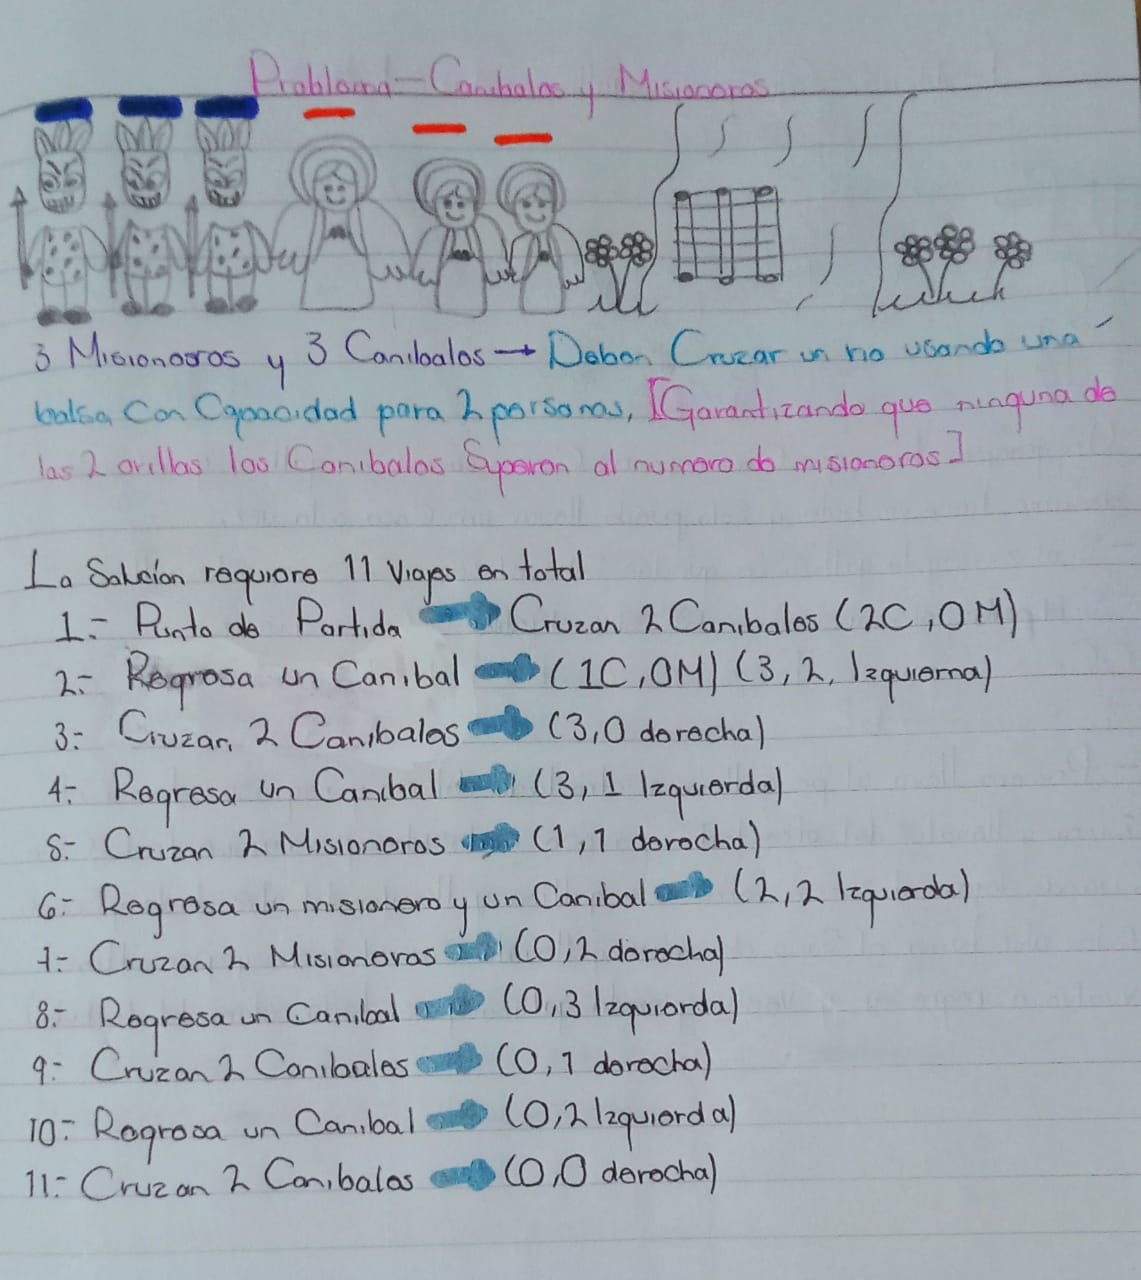 Problema - Canibales y Misioneros
3 Misioneros y 3 Canibales → Deben Cruzar un rio usando una
balsa Con Capacidad para 2 personas, [Garantizando que ninguna de
las 2 orillas los Canibales Superen al numero de misioneros]
La Solución requiere 11 Viajes en total
1.- Punto de Partida → Cruzan 2 Canibales (2C, 0M)
2.- Regresa un Canibal → (1C, 0M) (3, 2, Izquierna)
3.- Cruzan 2 Canibales → (3,0 derecha)
4.- Regresa un Canibal → (3, 1 Izquierda)
5.- Cruzan 2 Misioneros → (1, 1 derecha)
6.- Regresa un misionero y un Canibal → (2, 2 Izquierda)
7.- Cruzan 2 Misioneros → (0, 2 derecha)
8.- Regresa un Canibal → (0, 3 Izquierda)
9.- Cruzan 2 Canibales → (0, 1 derecha)
10.- Regresa un Canibal → (0, 2 Izquierda)
11.- Cruzan 2 Canibales → (0, 0 derecha)